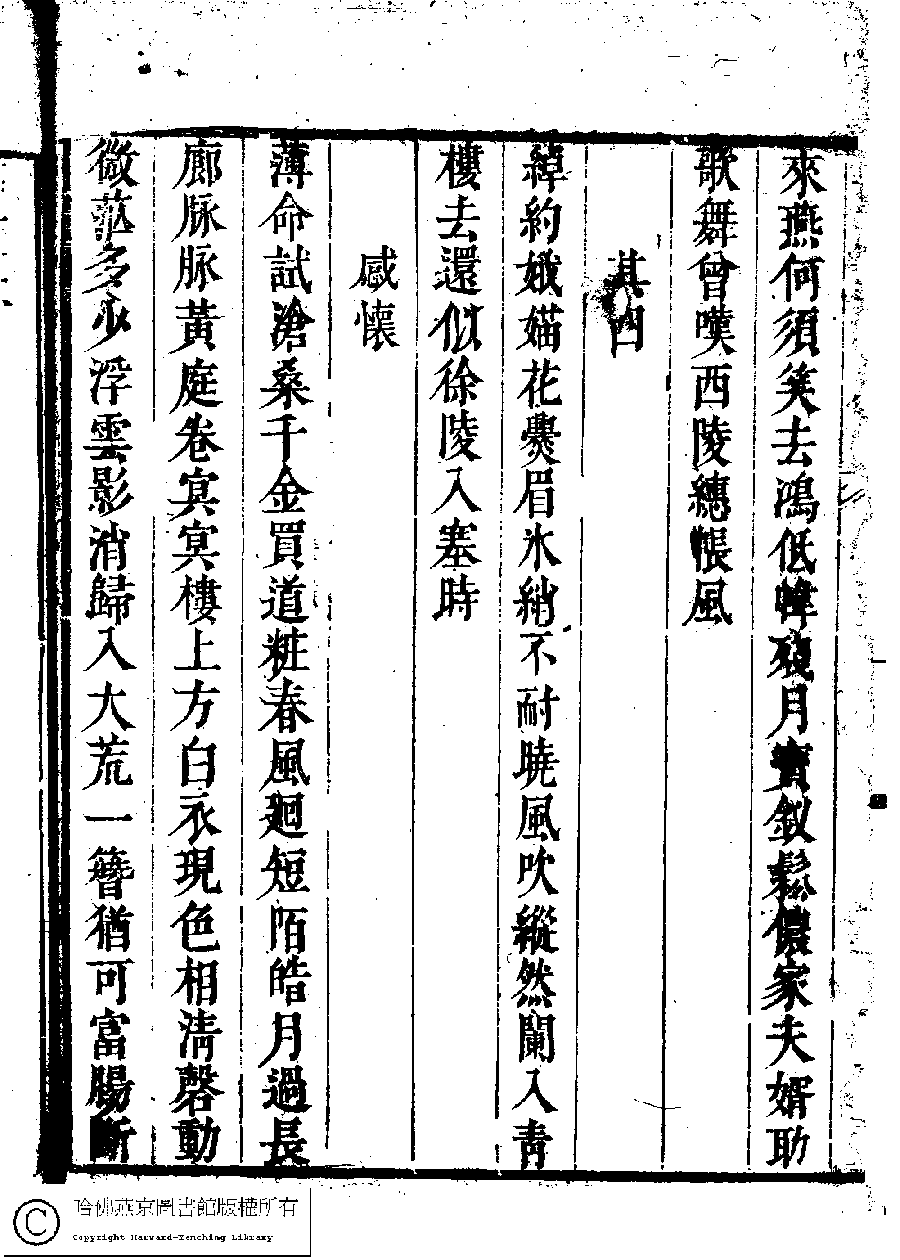 來燕何須笑去鴻低幃殘月寶釵鬆儂家夫婿助
歌舞曾嘆西陵繐帳風
其四
綽約娥媌花㸑眉氷綃不耐曉風吹縱然闌入靑
樓去還似徐陵入塞時
感懷
薄命試滄桑千金買道粧春風廻短陌皓月過長
廊脉脉黃庭卷㝠㝠樓上方白衣現色相淸磬動
微𦶜多少浮雲影消歸入大荒一簪猶可富腸斷
哈佛燕京圖書館版權所有
Copyright Harvard-Yenching Library